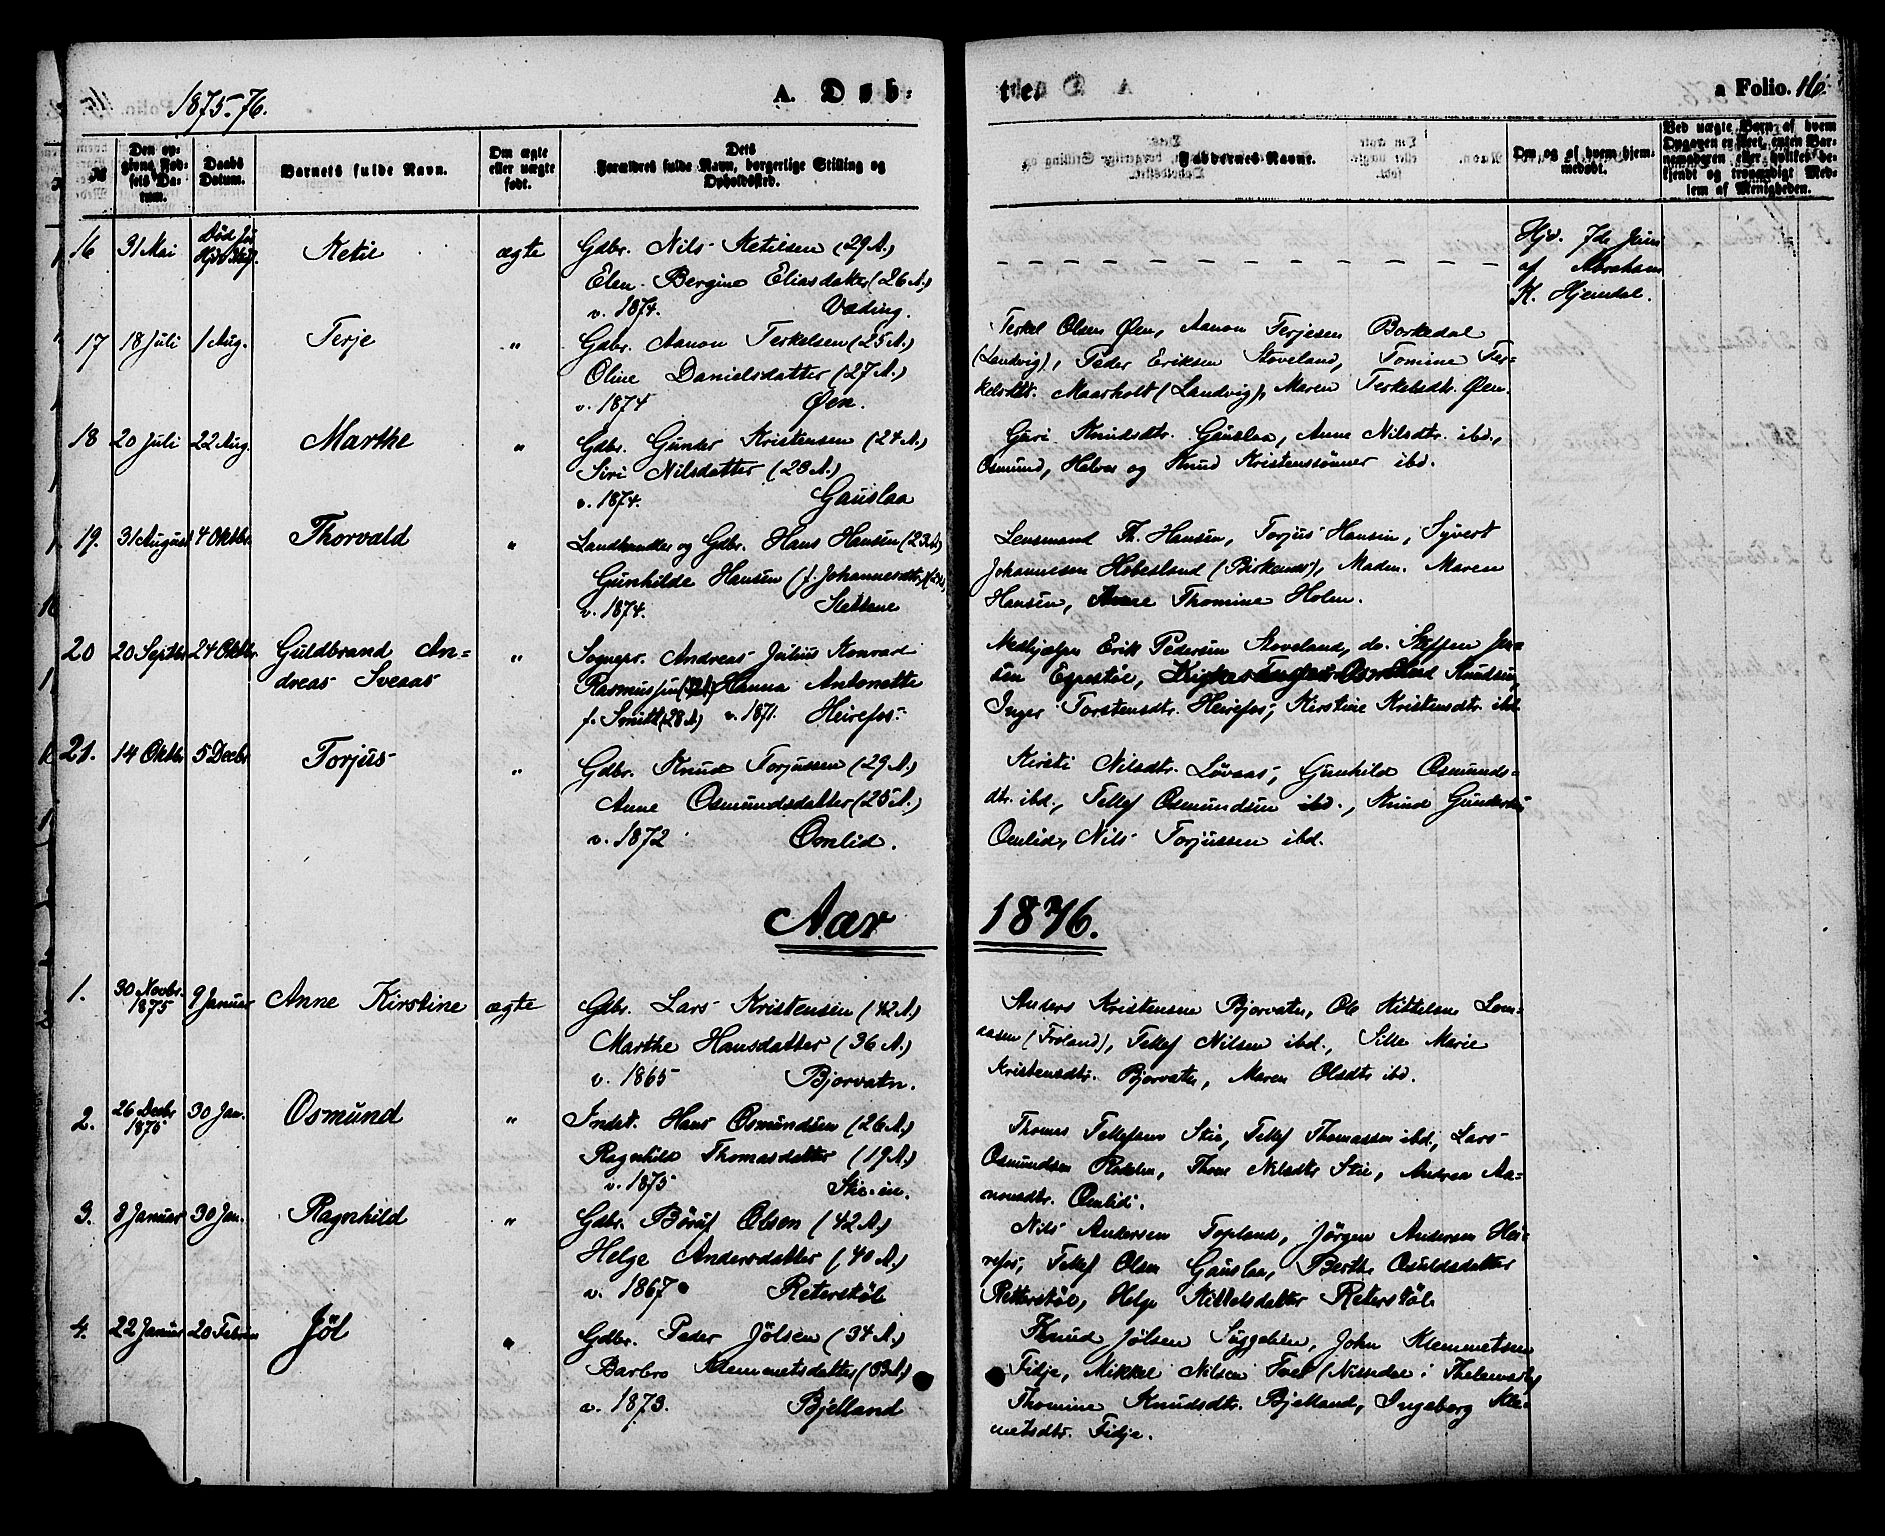 1875-76.
A. Døb-
te.
a Folio. 16.
№
Den opgivne Fødsels Datum.
Daabs Datum.
Barnets fulde Navn.
Om ægte eller uægte født.
Dets Forældres fulde Navn, borgerlige Stilling og Opholdssted.
Faddernes Navne.
Om og af hvem hjemmedøbt.
Ved uægte Børn, af hvem
16
31 Mai
Ketil
ægte
Gdbr. Nils Ketilsen (29 A.)
Elen Bergine Eliasdatter (26 A.)
v. 1874. Væding.
Hjd. 7de Juni
af Abraham
K. Hjemdal.
17
18 Juli
1 Aug.
Terje
"
Gdbr. Aanon Terkelsen (25 A.)
Oline Danielsdatter (27 A.)
v. 1874 Øen.
Terkel Olsen Øen, Aanon Terjesen Borkedal
(Landvig), Peder Eriksen Stoveland, Tomine Ter-
kelsdtr. Maarholt (Landvig), Maren Terkelsdtr. Øen.
18
20 Juli
22 Aug.
Marthe
"
Gdbr. Gunder Kristensen (24 A.)
Siri Nilsdatter (28 A.)
v. 1874. Gauslaa
Guri Knudsdtr. Gauslaa, Anne Nilsdtr. ibd.,
Osmund, Halvor og Knud Kristenssønner ibd.
19.
31 August
4 Oktbr.
Thorvald
"
Landhandler og Gdbr. Hans Hansen (23 A.)
Gunhilde Hansen (f. Johannesdtr.)
v. 1874.
Lensmand Th. Hansen, Torjus Hansen, Syvert
Johannesen Hobesland (Birkenes), Madm. Maren
Hansen, Anne Thomine Holm.
20
20 Septbr
24 Oktbr.
Guldbrand An-
dreas Sveaas
"
Sognepr. Andreas Julius Konrad
Rasmussen Hanna Antonette
f. Smitt (28 A) v. 1871. Heirefos.
Medhjælper Erik Pedersen Stoveland, do. Steffen Jen-
sen Egestøe, Kirkesanger Osmund Knudsen,
Inger Torstensdtr. Heirefos, Kirstine Kristensdtr. ibd.
21.
14 Oktbr
5 Decbr
Torjus
"
Gdbr. Knud Torjussen (29 A.)
Anne Osmundsdatter (25 A.)
v. 1872 Omlid.
Kirsti Nilsdtr. Løvaas, Gunhild Osmunds-
dtr. ibd., Tellef Osmundsen ibd., Knud Gundersen
Omlid, Nils Torjussen ibd.
Aar 1876.
1.
30 Novbr.
1875
9 Januar
Anne Kirstine
ægte
Gdbr. Lars Kristensen (42 A.)
Marthe Hansdatter (36 A.)
v. 1865 Bjorvatn.
Anders Kristensen Bjorvatn, Ole Kittelsen Lom-
aasen (Froland), Tellef Nilsen ibd., Sille Marie
Kristensdtr. Bjorvatn, Maren Olsdtr ibd.
2.
26 Decbr
1875
30 Jan.
Osmund
"
Indst. Hans Osmundsen (26 A.)
Ragnhild Thomasdatter (19 A.)
v. 1875 Skie
Thomas Tellefsen Skie, Tellef Thomassen ibd., Lars
Osmundsen Nilsdtr Skie, Andrea Aa-
nonsdtr. Omlid.
3.
8 Januar
30 Jan.
Ragnhild
"
Gdbr. Børuf Olsen (42 A.)
Helge Andersdatter (40 A.)
v. 1867 Reterstøl
Nils Andersen Topland, Jørgen Andersen Hei-
refos, Tellef Olsen Gauslaa, Berthe Osuldsdatter
Retterstøl, Helge Kittelsdatter Reterstøl
4.
22 Januar
20 Februar
Jøl
"
Gdbr. Peder Jølsen (34 A.)
Barbro Klemmetsdatter (33 A.)
v. 1873. Bjelland
Knud Jølsen John Klemmetsen
Fidje, Mikkel Nilsen Tvet (Nissedal i Thelemark)
Thomine Knudsdtr. Bjelland, Ingeborg Kle-
metsdtr. Fidje.